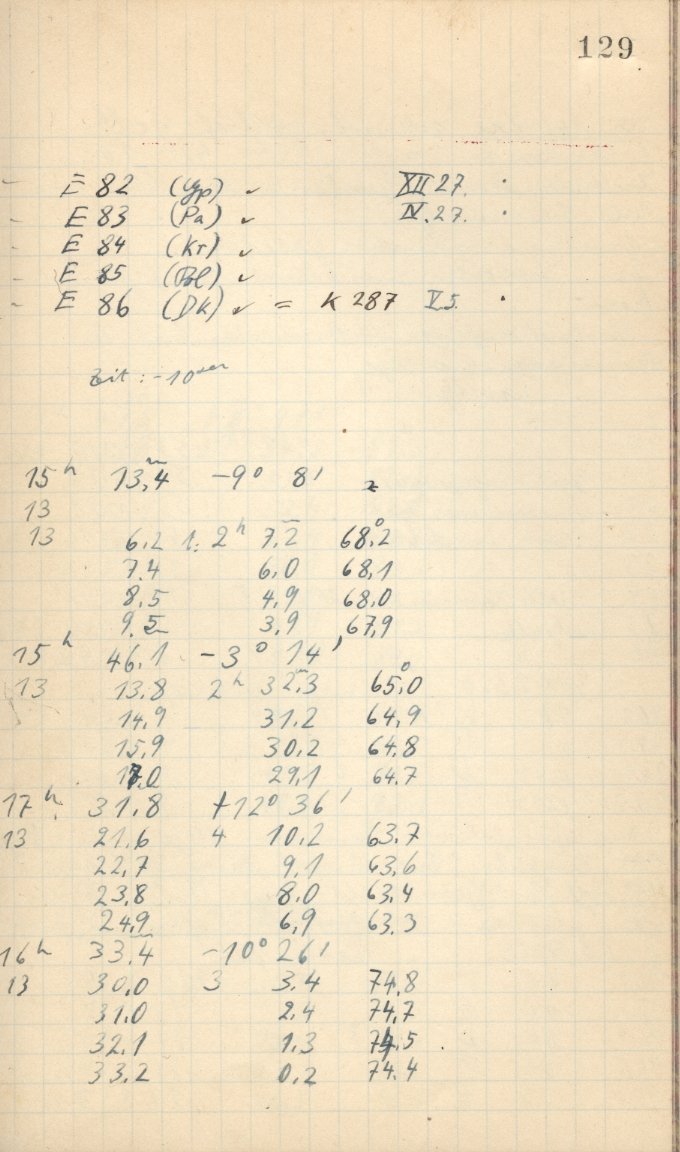 129
- E 82 (Gp) ✓ XII 27. ·
- E 83 (Pa) ✓ IV. 27. ·
- E 84 (Kr) ✓
- E 85 (Pol) ✓
- E 86 (DK) ✓ = K 287 V 5. ·
Zeit : -10
15h 13,4m -9° 8'
13
13 6.2 t: 2h 7.2m 68.2°
7.4 6.0 68,1
8.5 4.9 68.0
9.5 3.9 67,9
15h 46.1 -3° 14'
13 13.8 2h 32.3m 65.0°
14.9 31.2 64,9
15,9 30.2 64.8
17.0 29,1 64.7
17h 31.8 +12° 36'
13 21.6 4 10.2 63.7
22,7 9.1 63.6
23,8 8.0 63.4
24,9 6,9 63.3
16h 33.4m -10° 26'
13 30,0 3 3.4 74,8
31.0 2.4 74,7
32.1 1.3 74.5
33.2 0.2 74.4